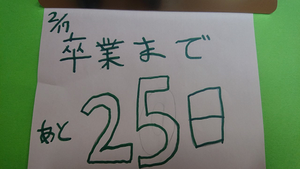 2/17
卒業まで
あと25日